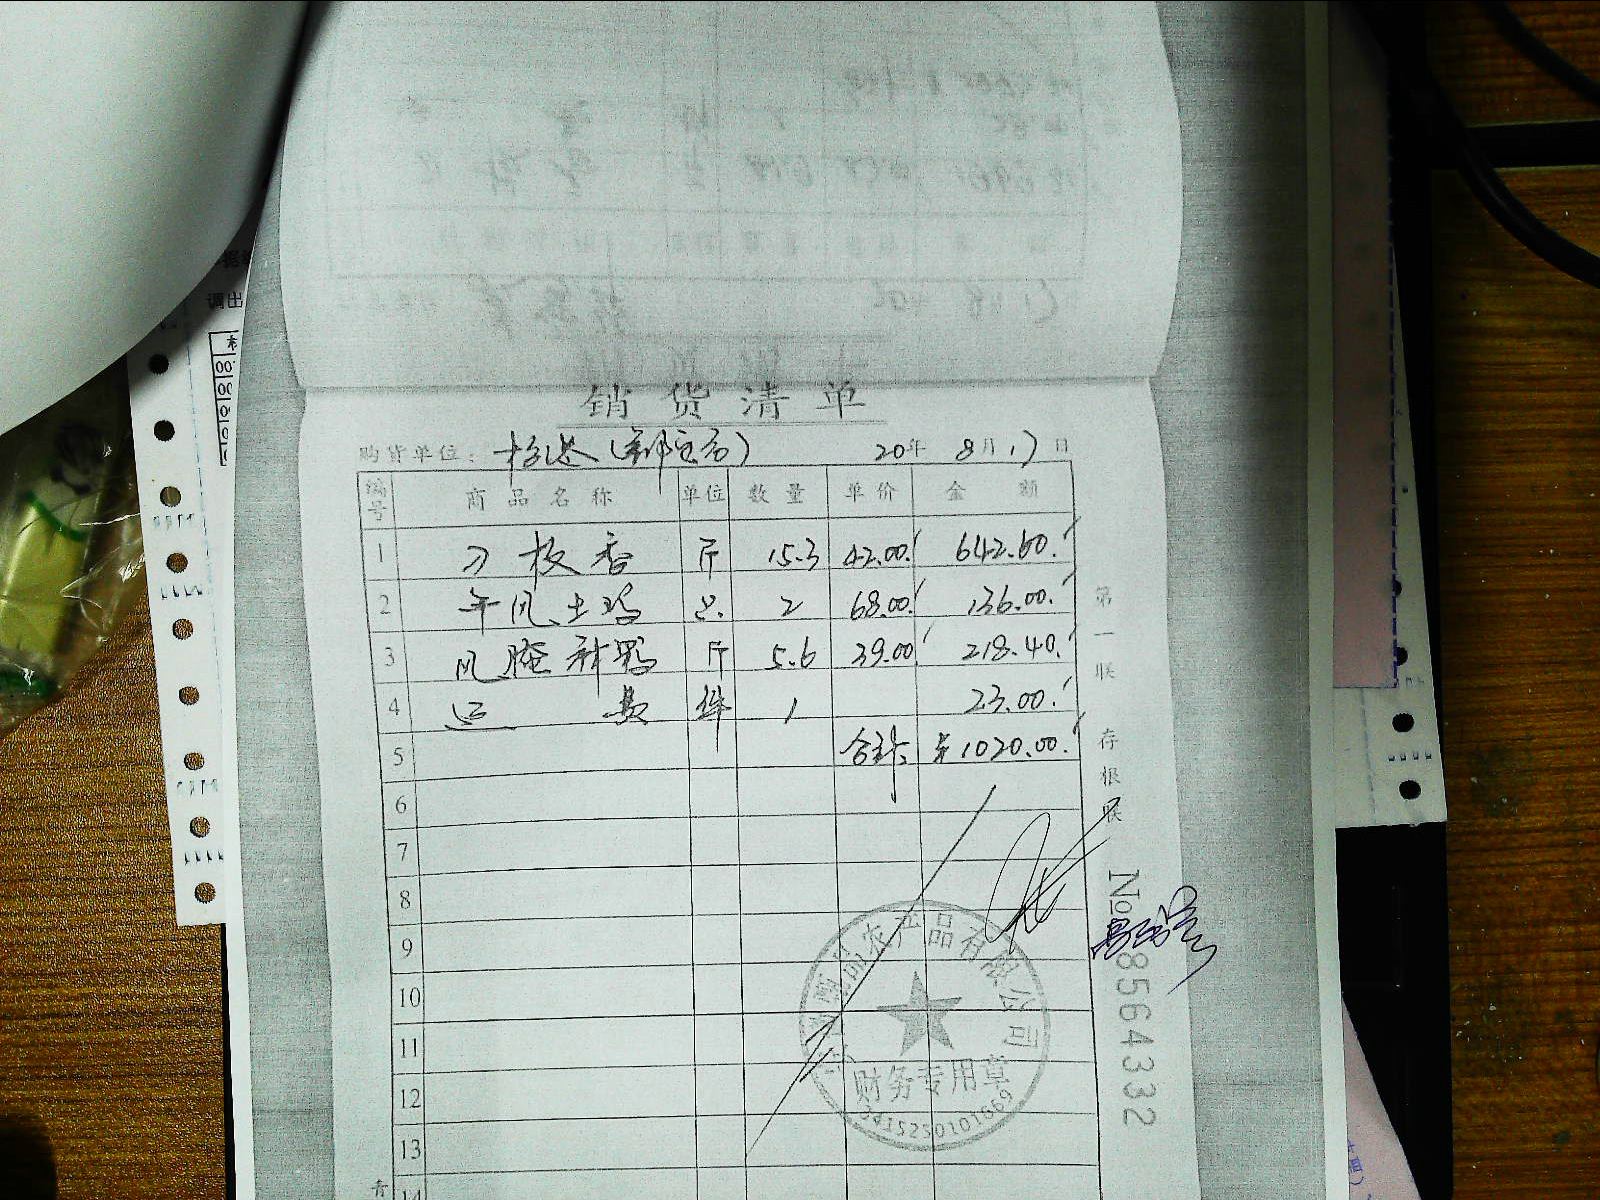 调出
销货清单
购货单位： 20年 8月17日
编号 商品名称 单位 数量 单价 金额
1 刀板香 斤 15.3 42.00 642.60
2 年风土鸡 只 2 68.00 136.00
3 风腌 鸭 斤 5.6 39.00 218.40
4 运费 件 1 23.00
5 合计 ¥1020.00
6
7
8
9
10
11
12
13
14
第一联 存根联
No 8564332
农产品有限公司
财务专用章
3415250101669